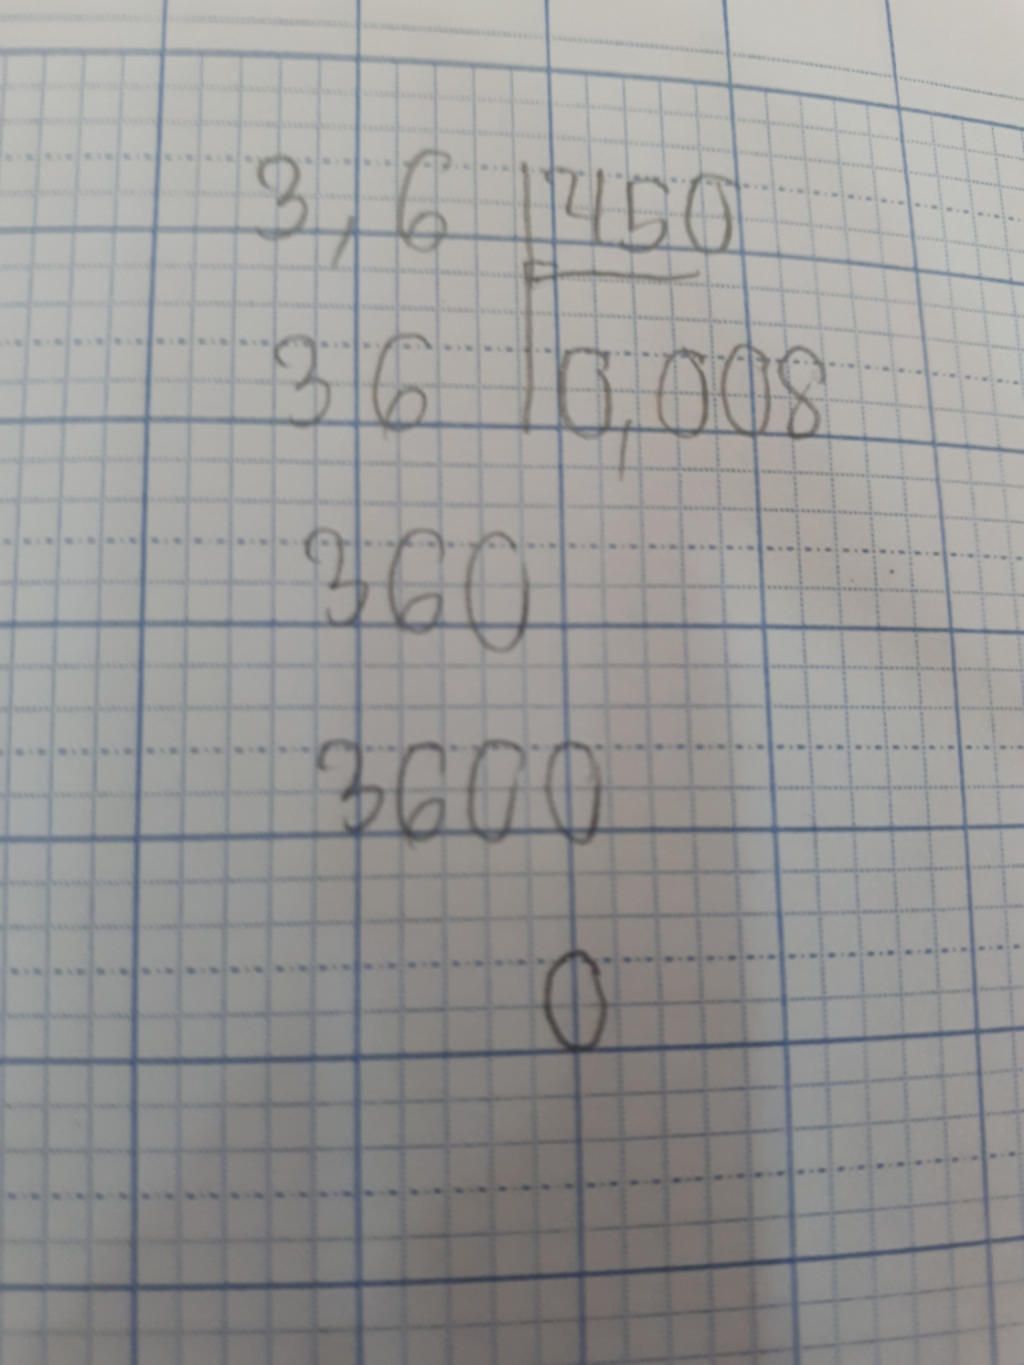 3,6 450
36 0,008
360
3600
0